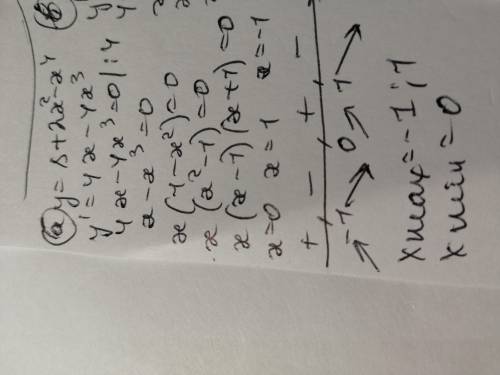 а) y = 5 + 2x² - x⁴
y' = 4x - 4x³
4x - 4x³ = 0 | : 4
x - x³ = 0
x(1 - x²) = 0
x(x² - 1) = 0
x(x - 1)(x + 1) = 0
x = 0 x = 1 x = -1
+ - + -
↗ -1 ↘ 0 ↗ 1 ↘
x max = -1; 1
x min = 0
в)
y'